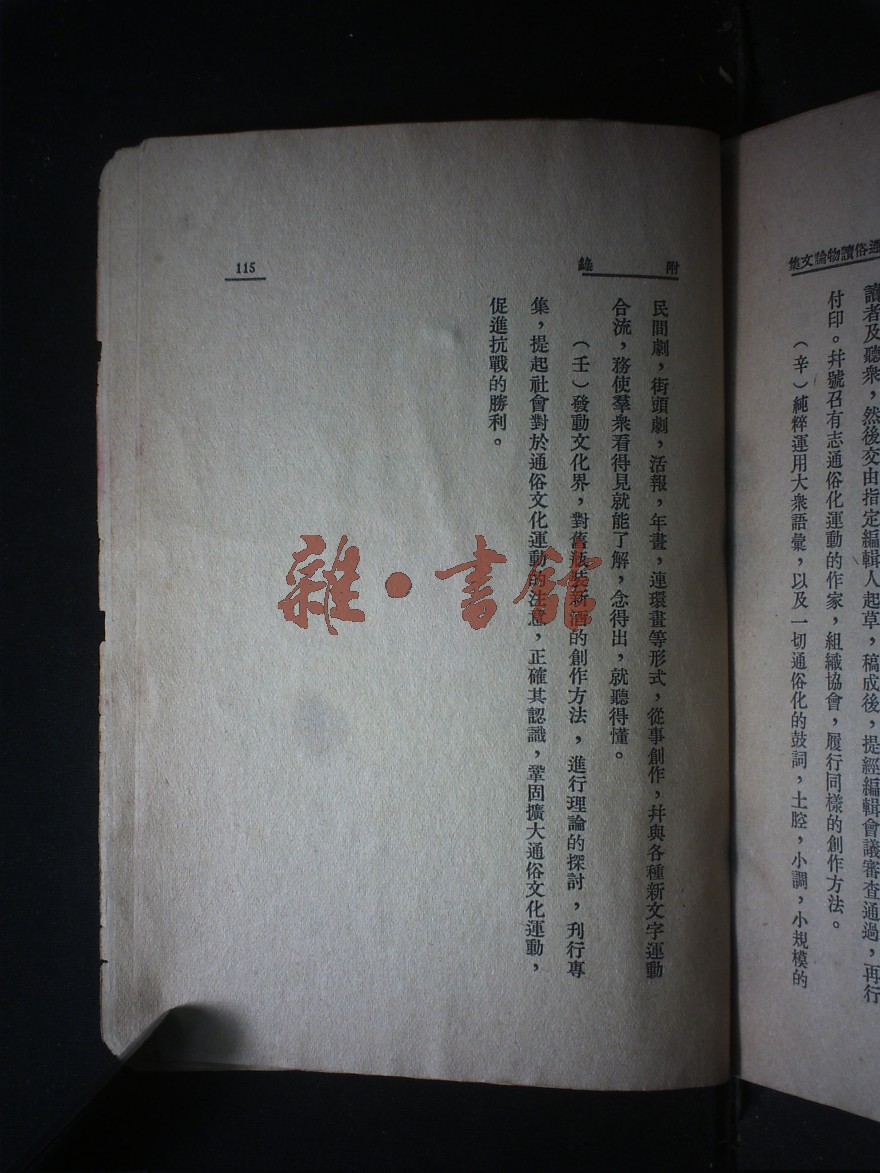 通俗讀物論文集
讀者及聽衆，然後交由指定編輯人起草，稿成後，提經編輯會議審查通過，再行
付印。幷號召有志通俗化運動的作家，組織協會，履行同樣的創作方法。
（辛）純粹運用大衆語彙，以及一切通俗化的鼓詞，土腔，小調，小規模的
附錄
民間劇，街頭劇，活報，年畫，連環畫等形式，從事創作，幷與各種新文字運動
合流，務使羣衆看得見就能了解，念得出，就聽得懂。
（壬）發動文化界，對舊瓶裝新酒的創作方法，進行理論的探討，刊行專
集，提起社會對於通俗文化運動的注意，正確其認識，鞏固擴大通俗文化運動，
促進抗戰的勝利。
115
雜·書館